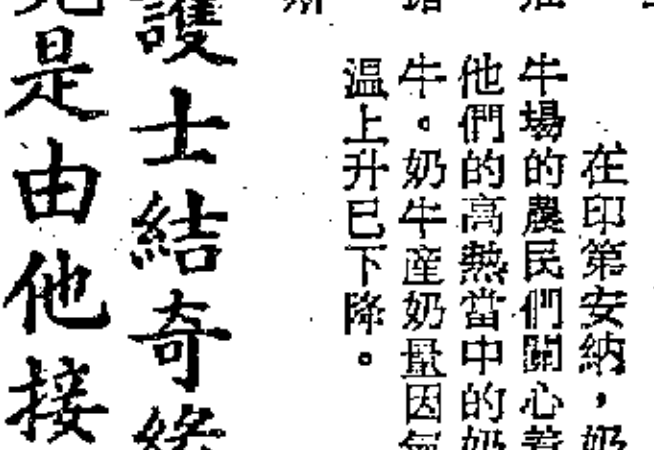 在印第安納，奶
牛場的農民們關心着
他們的高熱當中的奶
牛。奶牛產奶量因氣
溫上升已下降。
護士結奇緣
是由他接